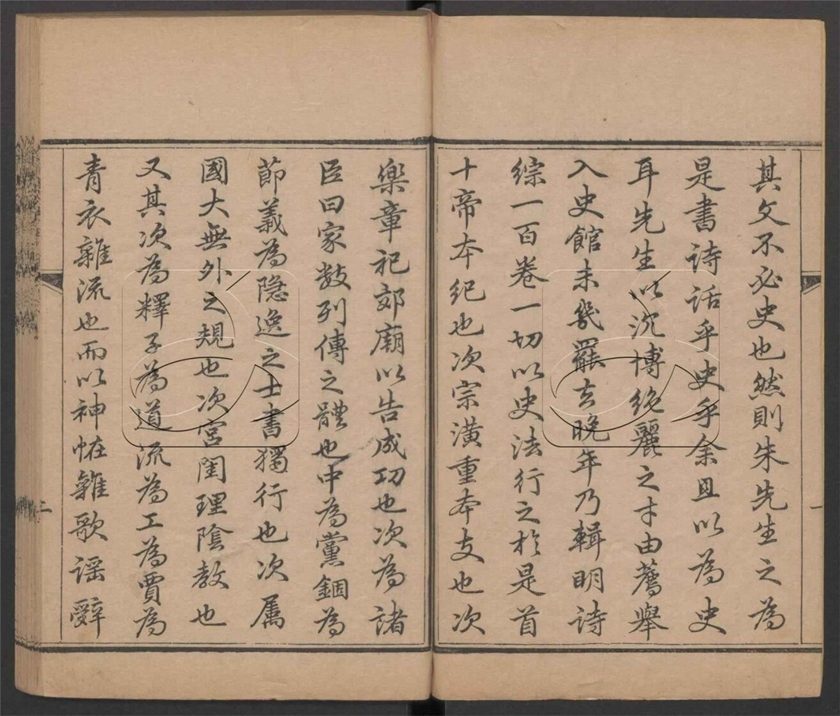 其文不必史也然則朱先生之為
是書詩話乎史乎余且以為史
耳先生以沉博絕麗之才由薦舉
入史館未幾罷去晚年乃輯明詩
綜一百卷一切以史法行之於是首
十帝本紀也次宗潢重本支也次
樂章祀郊廟以告成功也次為諸
臣曰家數列傳之體也中為黨錮為
節義為隱逸之士書獨行也次屬
國大無外之規也次宮閨理陰教也
又其次為釋子為道流為工為賈為
青衣雜流也而以神怪雜歌謡辭
一
二